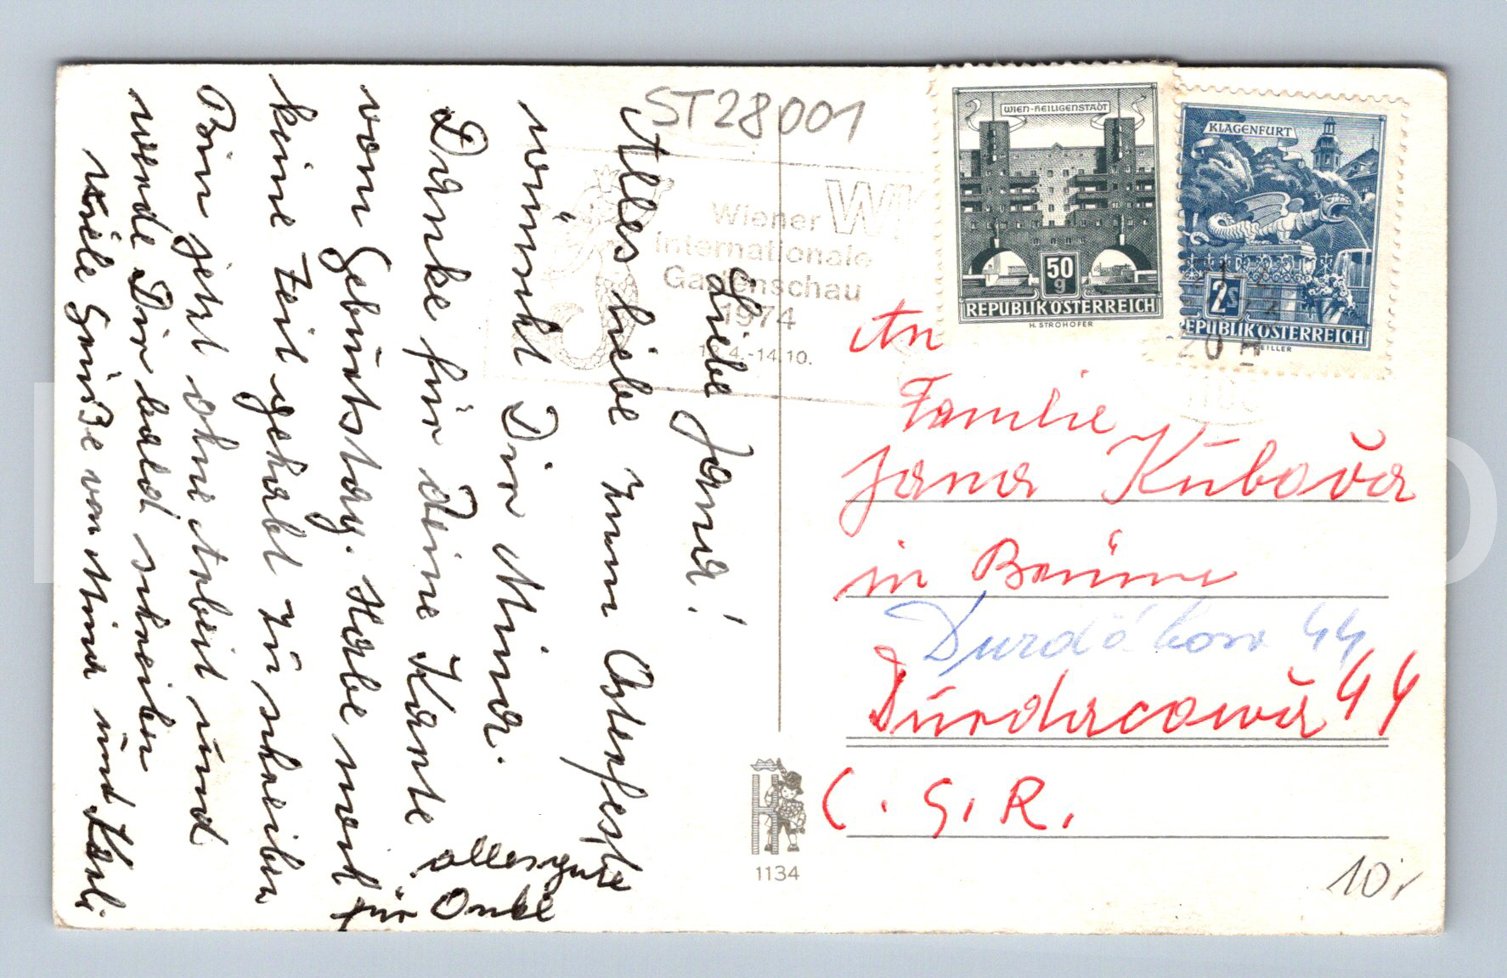 ST28001
Liebe Jana!
Alles liebe zum Osterfeste
wünscht Dir Mina.
Danke für Deine Karte
vom Geburtstag. Habe noch
keine Zeit gehabt zu schreiben
Bin jetzt ohne Arbeit und
werde Dir bald schreiben
viele Grüße von Mina und Karli
alles gute
für Onkel
Wiener
internationale
Gartenschau
1974
4.-14.10.
WIEN-HEILIGENSTADT
50
g
REPUBLIK ÖSTERREICH
H. STROHOFER
KLAGENFURT
2s
REPUBLIK ÖSTERREICH
20
An
Familie
Jana Kubova
in Brünn
Durdákova 44
Durdacowa 44
C.S.R.
1134
10,-